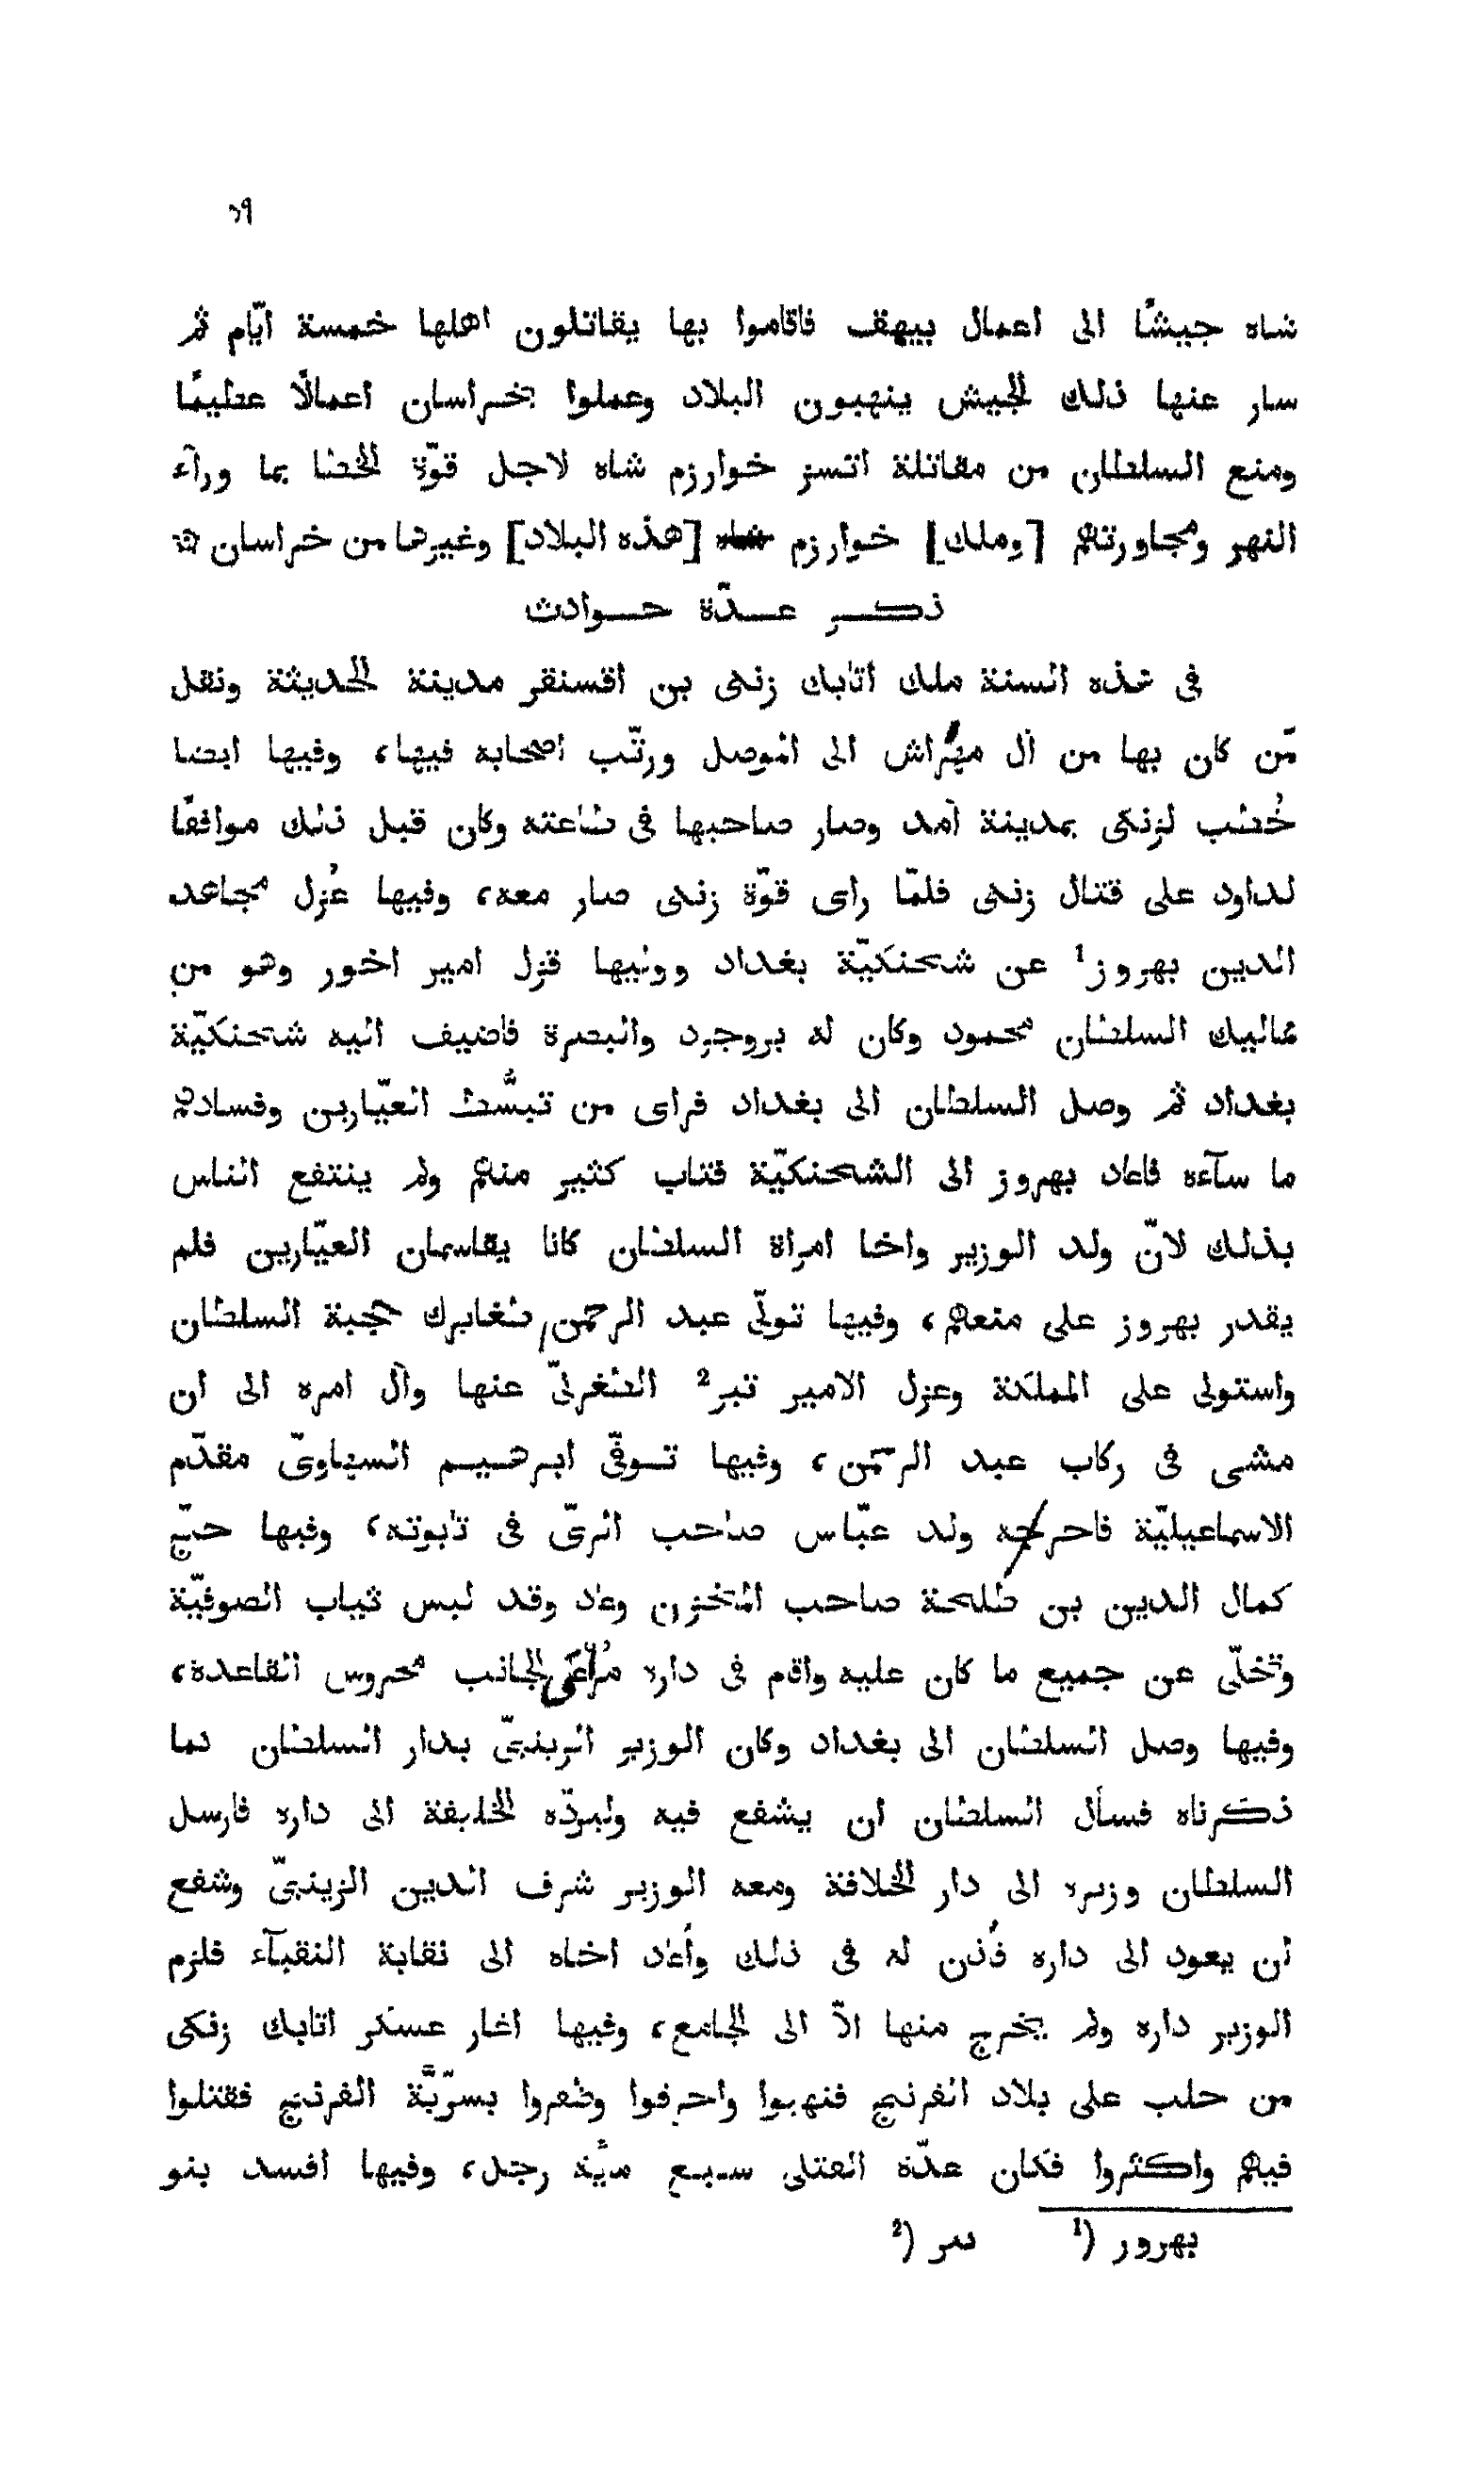 ٥٩
شاه جيشًا الى اعمال بيهق فاقاموا بها يقاتلون اهلها خمسة ايّام ثم
سار عنها ذلك الجيش ينهبون البلاد وعملوا بخراسان اعمالًا عظيمًا
ومنع السلطان من مقاتلة اتسز خوارزم شاه لاجل قوّة الخطا بما ورآء
النهر ومجاورتهم [وملك] خوارزم شاه [هذه البلاد] وغيرها من خراسان ۞
ذكر عدّة حوادث
فى هذه السنة ملك اتابك زنكى بن اقسنقر مدينة الحديثة ونقل
مّن كان بها من آل مهراش الى الموصل ورتّب اصحابه فيها، وفيها ايضا
خُطب لزنكى بمدينة آمد وصار صاحبها فى طاعته وكان قبل ذلك موافقًا
لداود على قتال زنكى فلمّا راى قوّة زنكى صار معه، وفيها عُزل مجاهد
الدين بهروز¹ عن شحنكيّة بغداد ووليها قزل امير اخور وهو من
مماليك السلطان محمود وكان له بروجرد والبصرة فاضيف اليه شحنكيّة
بغداد ثم وصل السلطان الى بغداد فراى من تبسُّط العيّارين وفسادهم
ما سآءه فاعاد بهروز الى الشحنكيّة فتاب كثير منهم ولم ينتفع الناس
بذلك لانّ ولد الوزير واخا امراة السلطان كانا يقاسمان العيّارين فلم
يقدر بهروز على منعهم، وفيها تولّى عبد الرحمن طغايرك حجبة السلطان
واستولى على المملكة وعزل الامير تبر² الطغرلىّ عنها وآل امره الى ان
مشى فى ركاب عبد الرحمن، وفيها توفّى ابرهيم السهاوىّ مقدّم
الاسماعيليّة فاحرجه ولد عبّاس صاحب الرىّ فى تابوته، وفيها حجّ
كمال الدين بن طلحة صاحب المخزن وعاد وقد لبس ثياب الصوفيّة
وتخلّى عن جميع ما كان عليه واقام فى داره مُراعَى الجانب محروس القاعدة،
وفيها وصل السلطان الى بغداد وكان الوزير الزينبىّ بدار السلطان كما
ذكرناه فسأل السلطان ان يشفع فيه وليردّه الخليفة الى داره فارسل
السلطان وزيره الى دار الخلافة ومعه الوزير شرف الدين الزينبىّ وشفع
ان يعود الى داره فأُذن له فى ذلك وأُعاد اخاه الى نقابة النقبآء فلزم
الوزير داره ولم يخرج منها الّا الى الجامع، وفيها اغار عسكر اتابك زنكى
من حلب على بلاد الفرنج فنهبوا واحرقوا وظفروا بسريّة الفرنج فقتلوا
فيهم واكثروا فكان عدّة القتلى سبع مئة رجل، وفيها افسد بنو
¹) بهرور ²) سر